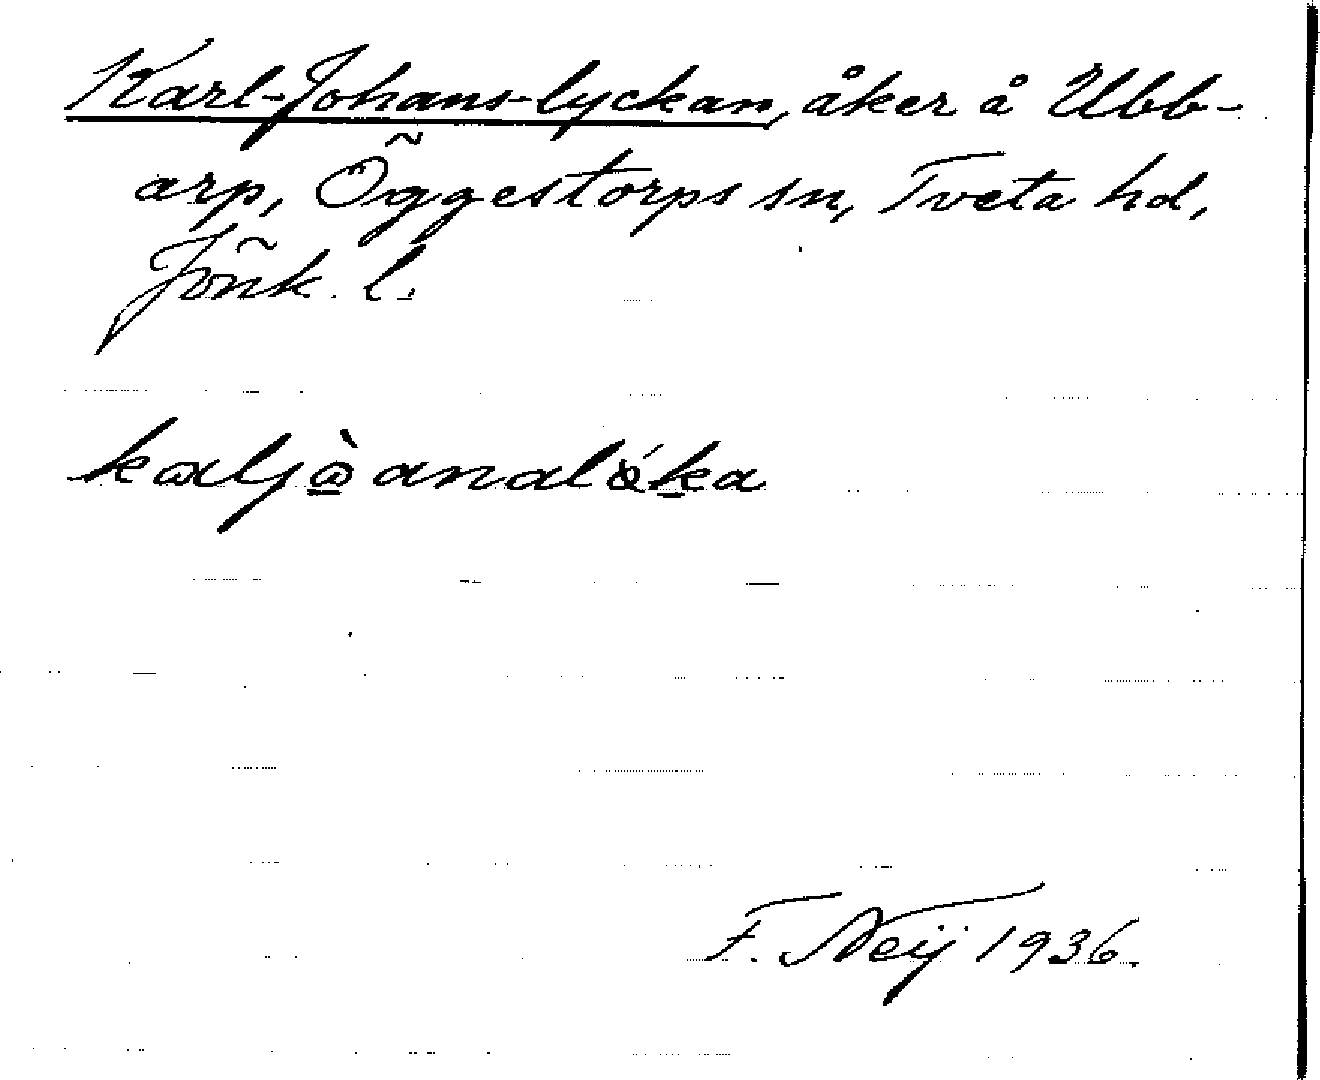 Karl-Johans-lyckan, åker å Ubb-
arp, Öggestorps sn, Tveta hd,
Jönk. l.
kaljò̱analǿḵa
F. Neij 1936.